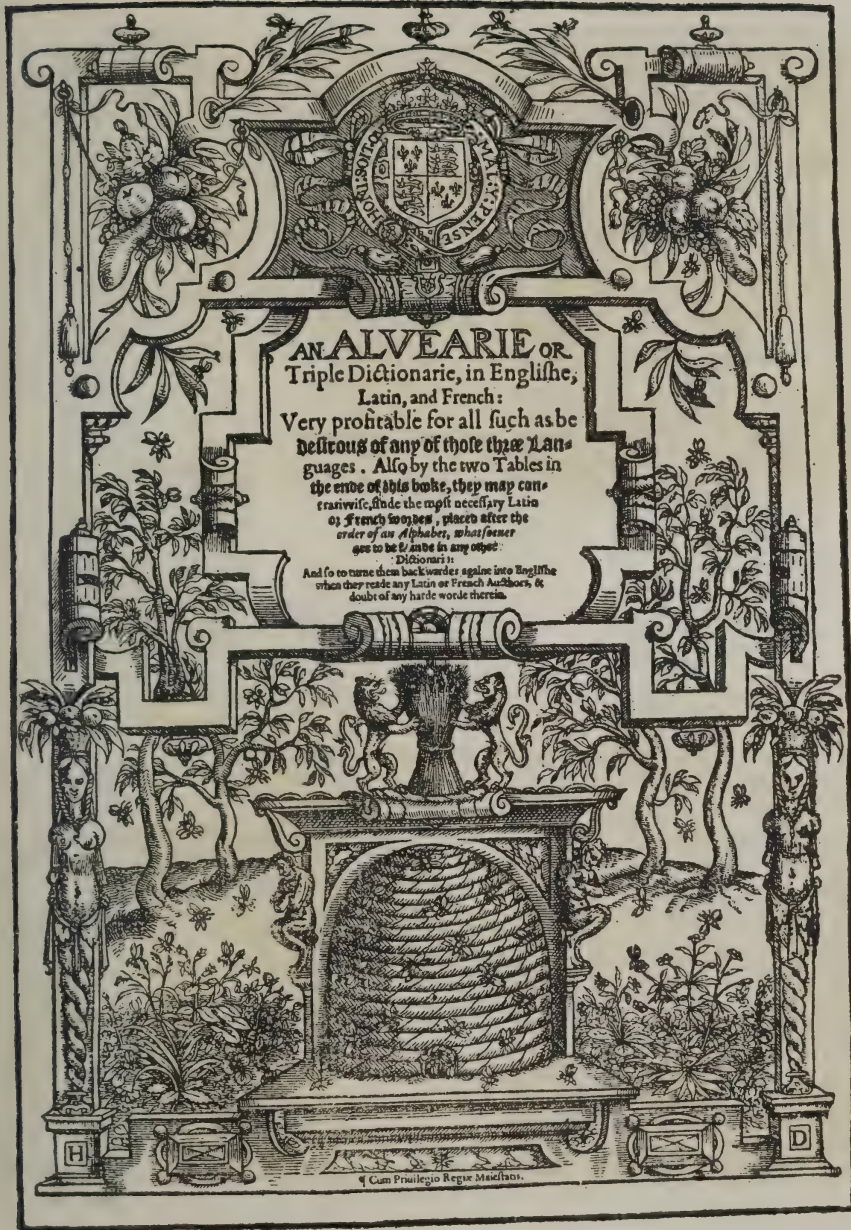 HONI·SOIT·QVI·MAL·Y·PENSE
AN ALVEARIE OR
Triple Dictionarie, in Engliſhe,
Latin, and French:
Very profitable for all ſuch as be
deſirous of any of thoſe three Lan-
guages. Alſo by the two Tables in
the ende of this booke, they may con-
trariwiſe, finde the moſt neceſſary Latin
or French wordes, placed after the
order of an Alphabet, whatſoeuer
are to be founde in any other
Dictionarie:
And ſo to turne them backwardes againe into Engliſhe
when they reade any Latin or French Aucthors, &
doubt of any harde worde therein.
H D
¶ Cum Priuilegio Regiæ Maieſtatis.